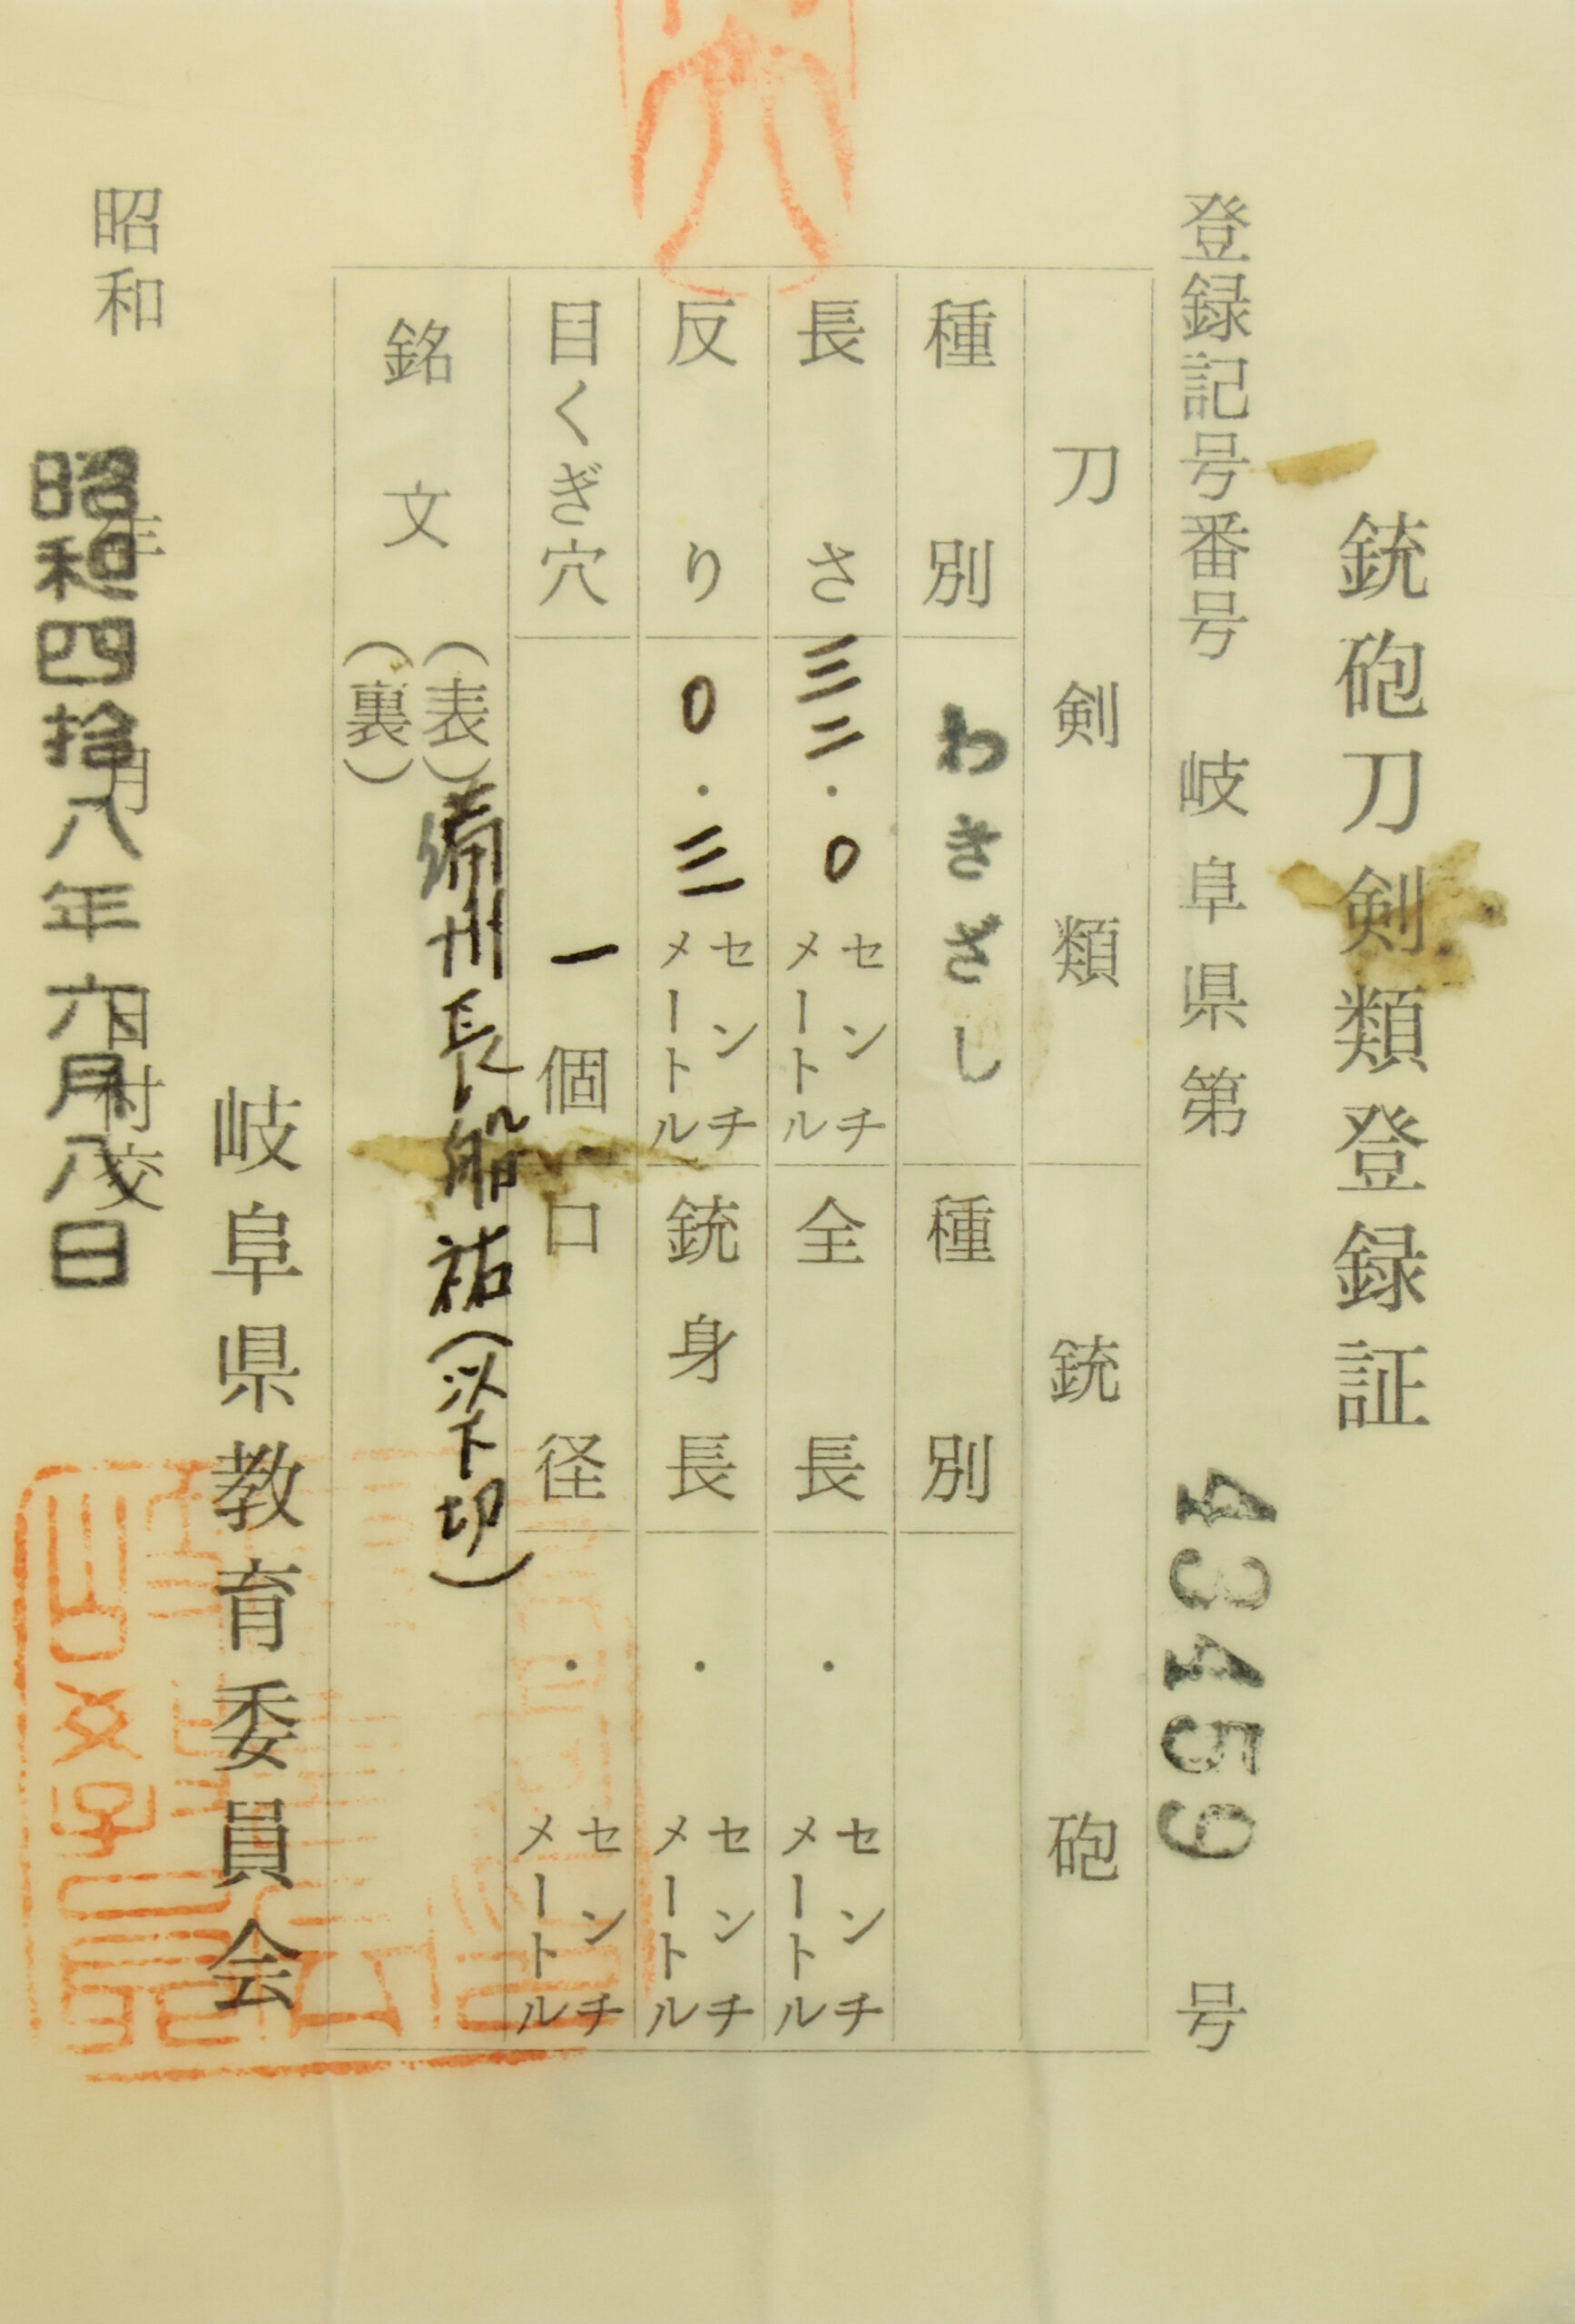 銃砲刀剣類登録証
登録記号番号 岐阜県第 43459 号
刀剣類 銃砲
種別 わきざし 種別
長さ 三二.0 センチメートル 全長 . センチメートル
反り 0.三 センチメートル 銃身長 . センチメートル
目くぎ穴 一個 口径 . センチメートル
銘文 (表) 備州長船祐(以下切)
(裏)
岐阜県教育委員会
昭和 年 月 日 交付
昭和四拾八年六月八日